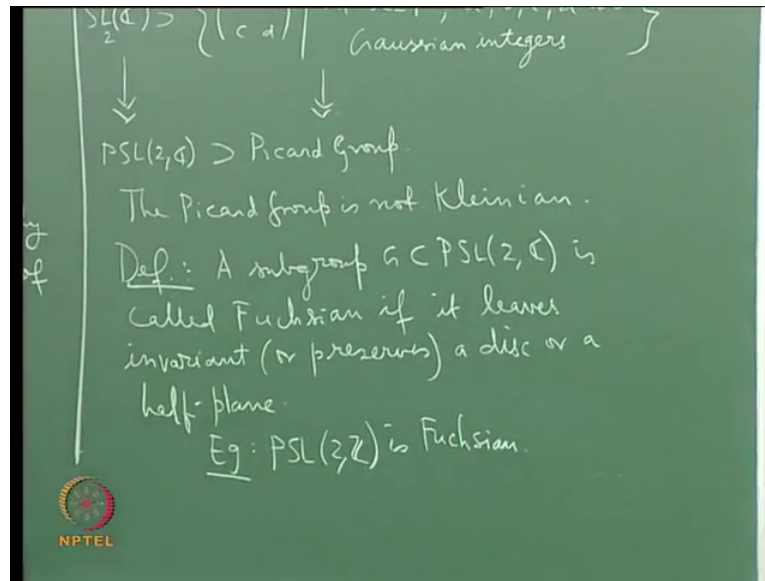 SL₂(ℂ) > { ( c d ) |
Gaussian integers }
PSL(2,ℂ) ⊃ Picard Group.
The Picard Group is not Kleinian.
Def.: A subgroup G ⊂ PSL(2,ℂ) is
called Fuchsian if it leaves
invariant (or preserves) a disc or a
half-plane.
Eg: PSL(2,ℤ) is Fuchsian.
of
NPTEL